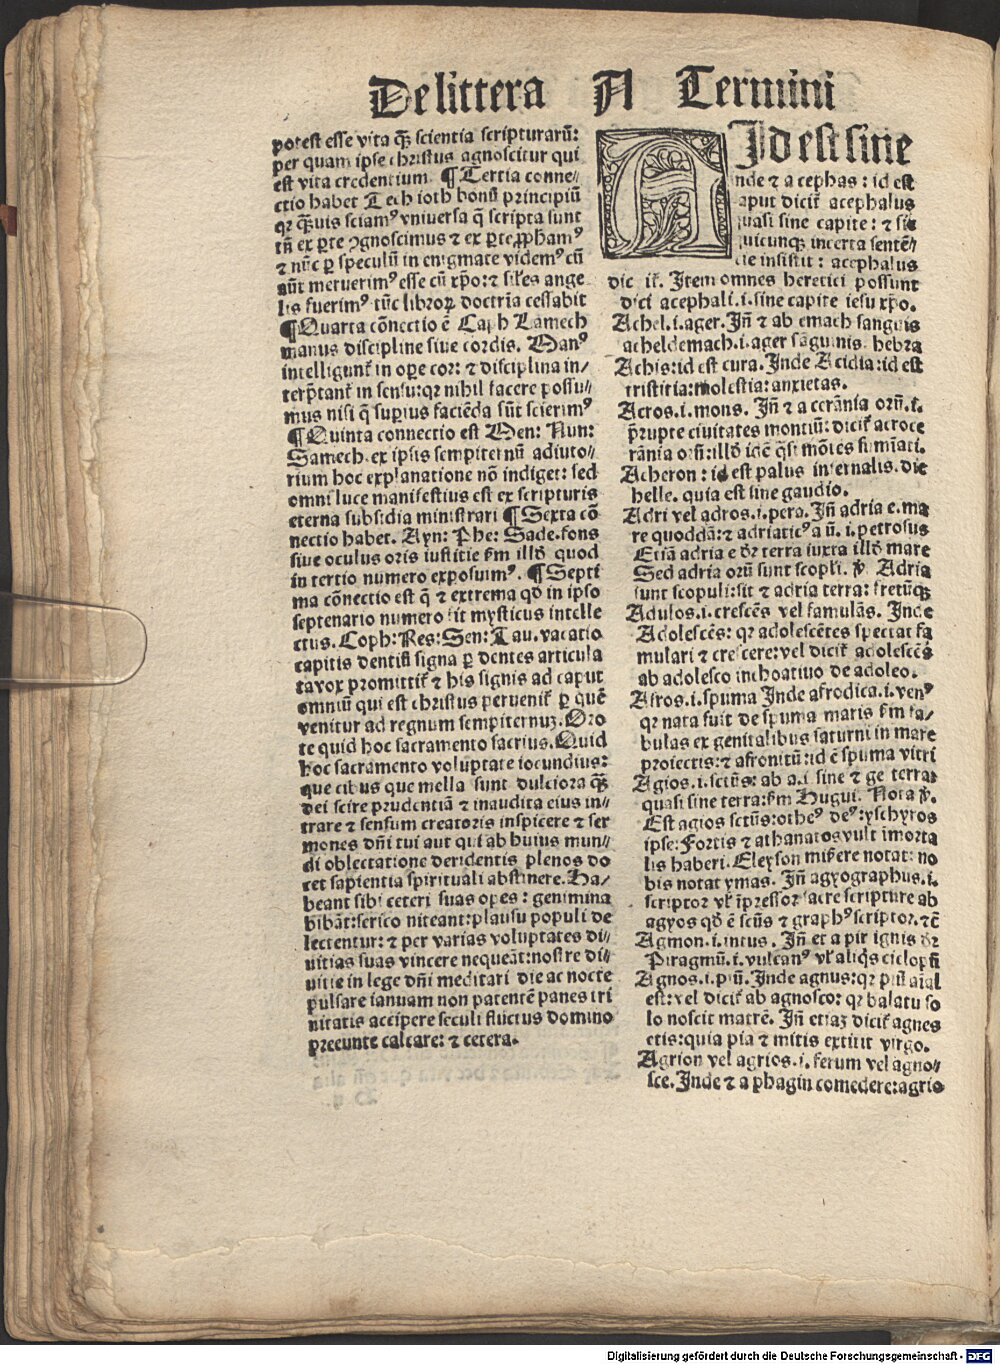 De littera A Termini
potest esse vita qʒ̃ scientia scripturarũ:
per quam ipse christus agnoscitur qui
est vita credentium. ¶ Tertia conne//
ctio habet Tech ioth bonũ principiũ
qꝛ qʒ̃uis sciamꝰ vniuersa q̃ scripta sunt
tñ ex ꝑte ꝯgnoscimus ⁊ ex ꝑte ꝓphamꝰ
⁊ nũc ꝑ speculũ in enigmate videmꝰ cũ
aũt meruerimꝰ esse cũ xp̃o: ⁊ sil'es ange
lis fuerimꝰ tũc libroꝝ doctrĩa cessabit
¶ Quarta cõnectio ẽ Caph Lamech
manus discipline siue cordis. Manꝰ
intelligunt̃ in oꝑe cor: ⁊ disciplina in/
terp̃tant̃ in sensu: qꝛ nihil facere possu//
mus nisi q̃ suꝑius faciẽda sũt scierimꝰ
¶ Quinta connectio est Men: Nun:
Samech. ex ipsis sempiternũ adiuto/
rium hoc explanatione nõ indiget: sed
omni luce manifestius est ex scripturis
eterna subsidia ministrari ¶ Sexta cõ
nectio habet. Ayn: Phe: Sade. fons
siue oculus oris iustitie s̃m illd̓ quod
in tertio numero exposuimꝰ. ¶ Septi
ma cõnectio est q̃ ⁊ extrema qd̓ in ipso
septenario numero sit mysticus intelle
ctus. Coph: Res: Sen: Tau. vacatio
capitis dentiũ signa ꝑ dentes articula
ta vox promittit̃ ⁊ his signis ad caput
omniũ qui est christus peruenit̃ ꝑ quẽ
venitur ad regnum sempiternuʒ. Oro
te quid hoc sacramento sacrius. Quid
hoc sacramento voluptate iocundius:
que cibus que mella sunt dulciora qʒ̃
dei scire prudentiã ⁊ inaudita eius in/
trare ⁊ sensum creatoris inspicere ⁊ ser
mones dñi tui aut qui ab huius mun//
di oblectatione deridentis plenos do
cet sapientia spirituali abstinere. Ha/
beant sibi ceteri suas opes: gemmina
bibãt: serico niteant: plausu populi de
lectentur: ⁊ per varias voluptates di//
uitias suas vincere nequeãt: nostre di//
uitie in lege dñi meditari die ac nocte
pulsare ianuam non patentẽ panes tri
nitatis accipere seculi fluctus domino
preeunte calcare: ⁊ cetera.
A Id est sine
nde ⁊ a cephas: id est
caput dicit̃ acephalus
quasi sine capite: ⁊ sic
quicunqʒ incerta sentẽ/
tie insistit: acephalus
dic it̃. Item omnes heretici possunt
dici acephali .i. sine capite iesu xp̃o.
Achel .i. ager. Jñ ⁊ ab emach sanguis
acheldemach .i. ager sãguinis hebra
Achis: id est cura. Inde Accidia: id est
tristitia: molestia: anxietas.
Acros .i. mons. Jñ ⁊ a cerãnia orũ .t̃.
p̃rupte ciuitates montiũ: dicit̃ acroce
rãnia orũ: illd̓ idẽ qsi mõtes fulmĩati.
Acheron: id est palus infernalis. die
helle. quia est sine gaudio.
Adri vel adros .i. petra. Jñ adria e. ma
re quoddã: ⁊ adriaticꝰ a ũ .i. petrosus
Etiã adria e dr̃ terra iuxta illd̓ mare
Sed adria orũ sunt scopli. ꝟ. Adria
sunt scopuli: sit ⁊ adria terra: fretũqʒ
Adulos .i. crescẽs vel famulãs. Inde
Adolescẽs: qꝛ adolescẽtes spectat fa
mulari ⁊ crescere: vel dicit̃ adolescẽs
ab adolesco inchoatiuo de adoleo.
Afros .i. spuma Inde afrodica .i. venꝰ
qꝛ nata fuit de spuma maris s̃m fa/
bulas ex genitalibus saturni in mare
proiectis: ⁊ afronitrũ: id ẽ spuma vitri
Agios .i. sctũs: ab a .i. sine ⁊ ge terra:
quasi sine terra: s̃m Hugui. Nota ꝟ.
Est agios sctũs: otheꝰ deꝰ: yschyros
ipse: Fortis ⁊ athanatos vult imorta
lis haberi. Eleyson misere notat: no
bis notat ymas. Jñ agyographus .i.
scriptor vl̃ ĩpressor sacre scripture ab
agyos qd̓ ẽ scũs ⁊ graphꝰ scriptor. ⁊c̃
Agmon .i. intus. Jñ et a pir ignis dr̃
Piragmũ .i. vulcanꝰ vl̃ aliqs ciclopũ
Agnos .i. piũ. Inde agnus: qꝛ piũ aĩal
est: vel dicit̃ ab agnosco: qꝛ balatu so
lo noscit matrẽ. Jñ etiaʒ dicit̃ agnes
etis: quia pia ⁊ mitis extitit virgo.
Agrion vel agrios .i. ferum vel agno//
sce. Inde ⁊ a phagin comedere: agrio
Digitalisierung gefördert durch die Deutsche Forschungsgemeinschaft - DFG